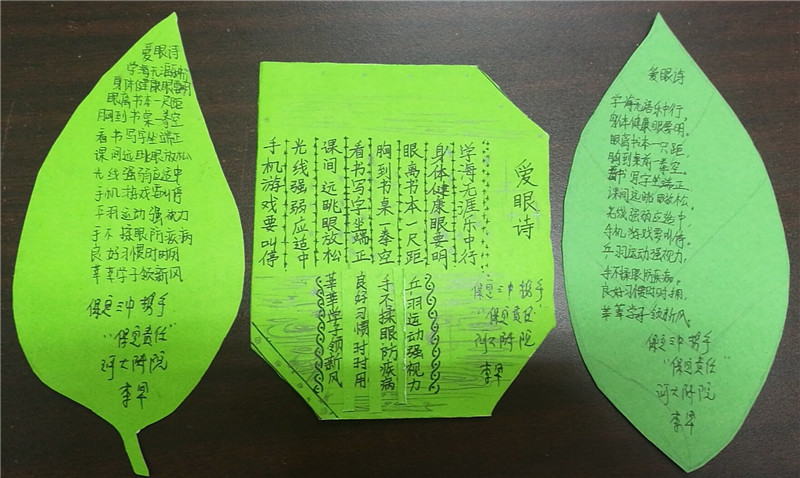 爱眼诗
学海无涯
身体健康眼要明
眼离书本一尺距
胸到书桌一拳空
看书写字坐端正
课间远眺眼放松
光线强弱应适中
手机游戏要叫停
乒羽运动强视力
手不揉眼防疾病
良好习惯时时用
莘莘学子领新风
保定三中 携手
“保定责任”
河大附院
李
爱眼诗
学海无涯乐中行
身体健康眼要明
眼离书本一尺距
胸到书桌一拳空
看书写字坐端正
课间远眺眼放松
光线强弱应适中
手机游戏要叫停
乒羽运动强视力
手不揉眼防疾病
良好习惯时时用
莘莘学子领新风
保定三中 携手
“保定责任”
河大附院
李
爱眼诗
学海无涯乐中行,
身体健康眼要明。
眼离书本一尺距,
胸到桌前一拳空。
看书写字坐端正,
课间远眺眼放松。
光线强弱应适中,
手机游戏要叫停。
乒羽运动强视力,
手不揉眼防疾病。
良好习惯时时用,
莘莘学子领新风。
保定三中 携手
“保定责任”
河大附院
李